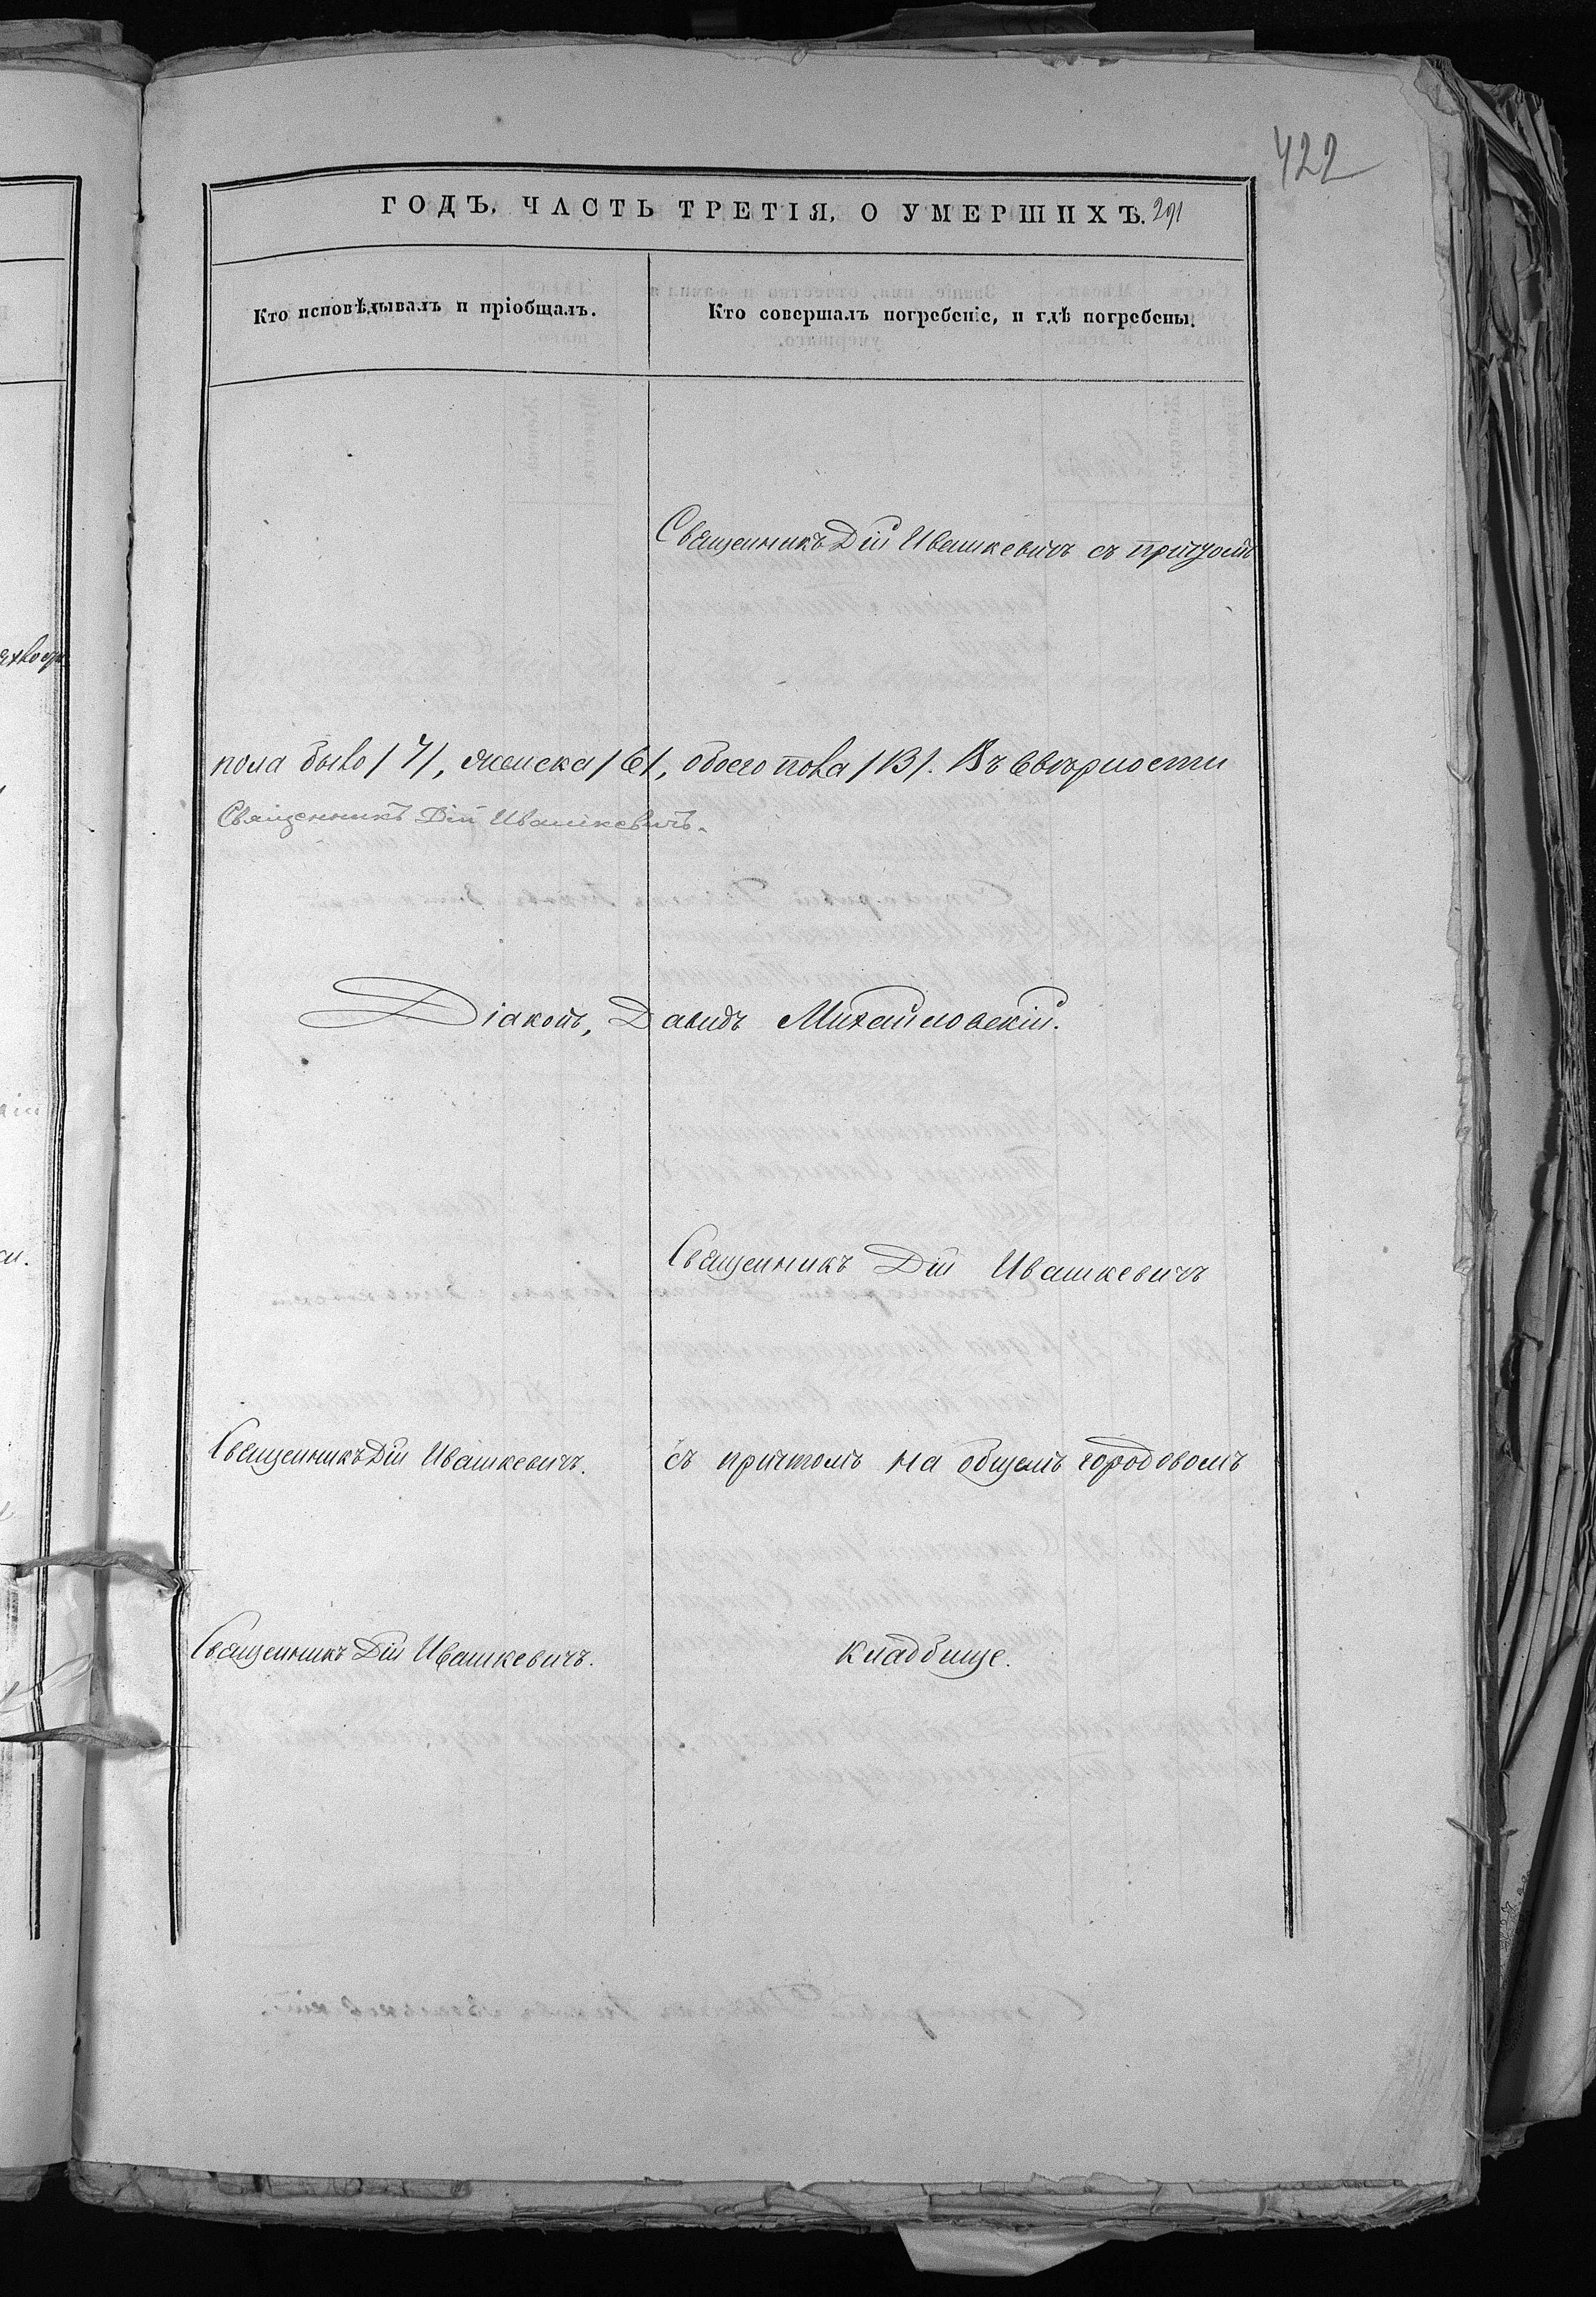 422
ГОДЪ, ЧАСТЬ ТРЕТІЯ, О УМЕРШИХЪ. 291
Кто исповѣдывалъ и пріобщалъ.
Кто совершалъ погребеніе, и гдѣ погребены.
Священникъ Дій Ивашкевичъ съ причтомъ
пола было /7/, женска /6/, обоего пола /13/. Въ ввѣрности
Священникъ Дій Ивашкевичъ.
Діаконъ, Давидъ Михайловскій.
Священникъ Дій Ивашкевичъ
Священникъ Дій Ивашкевичъ.
съ причтомъ на общемъ городовомъ
Священникъ Дій Ивашкевичъ.
кладбище.